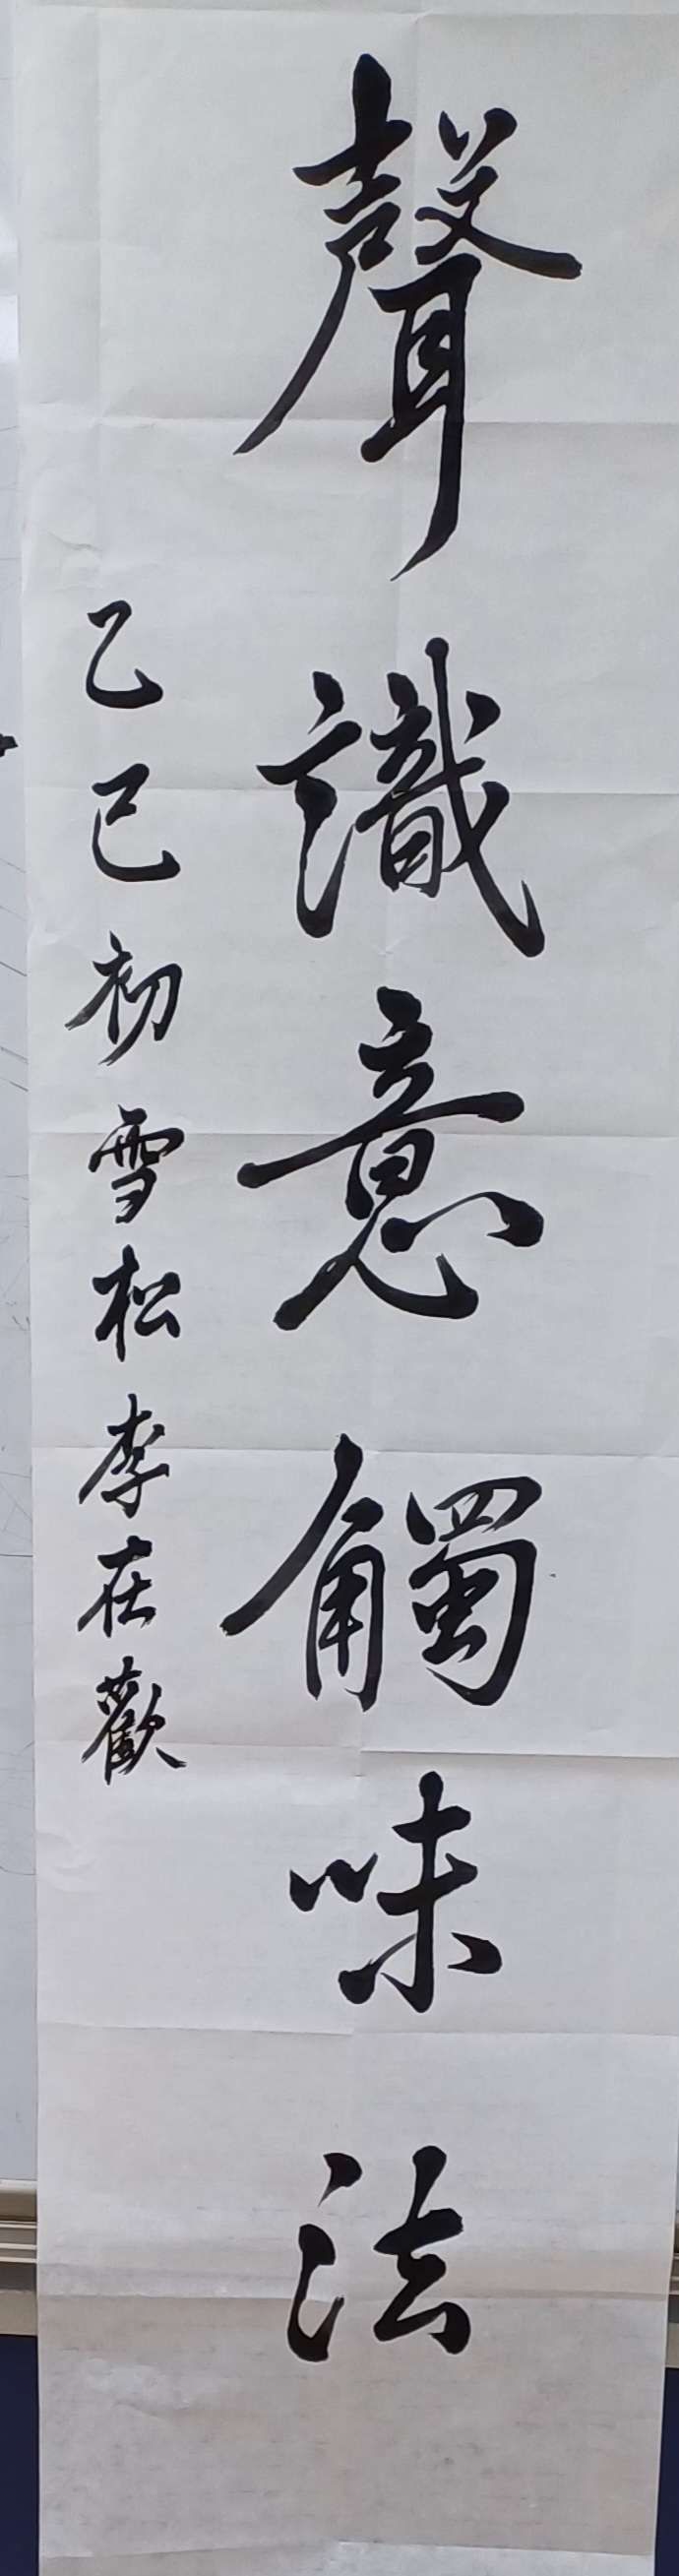 聲識意觸味法
乙巳初雪松李在歡